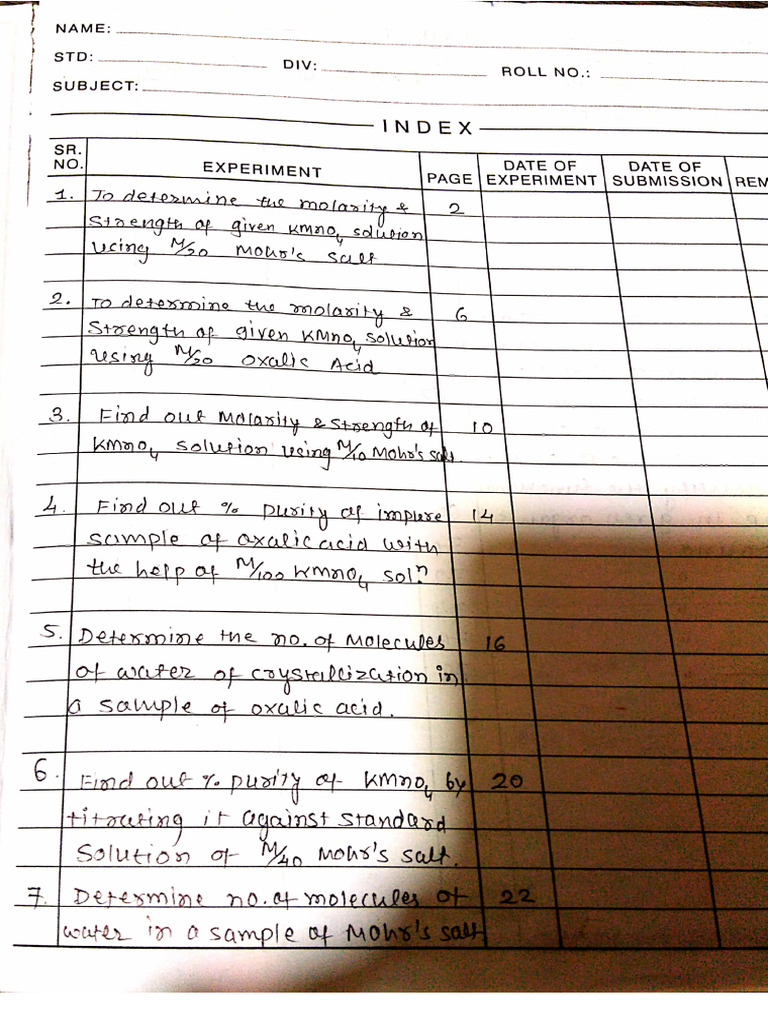 NAME:
STD: DIV: ROLL NO.:
SUBJECT:
INDEX
SR. NO. EXPERIMENT PAGE DATE OF EXPERIMENT DATE OF SUBMISSION REM
1. To determine the molarity & 2
Strength of given KMnO4 solution
using M/20 Mohr's salt
2. To determine the molarity & 6
Strength of given KMnO4 solution
using M/20 Oxalic Acid
3. Find out Molarity & Strength of 10
KMnO4 solution using M/10 Mohr's salt.
4. Find out % purity of impure 14
sample of oxalic acid with
the help of M/100 KMnO4 sol.n
5. Determine the no. of Molecules 16
of water of crystallization in
a sample of oxalic acid.
6. Find out % purity of KMnO4 by 20
titrating it against standard
Solution of M/40 Mohr's salt.
7. Determine no. of molecules of 22
water in a sample of Mohr's salt